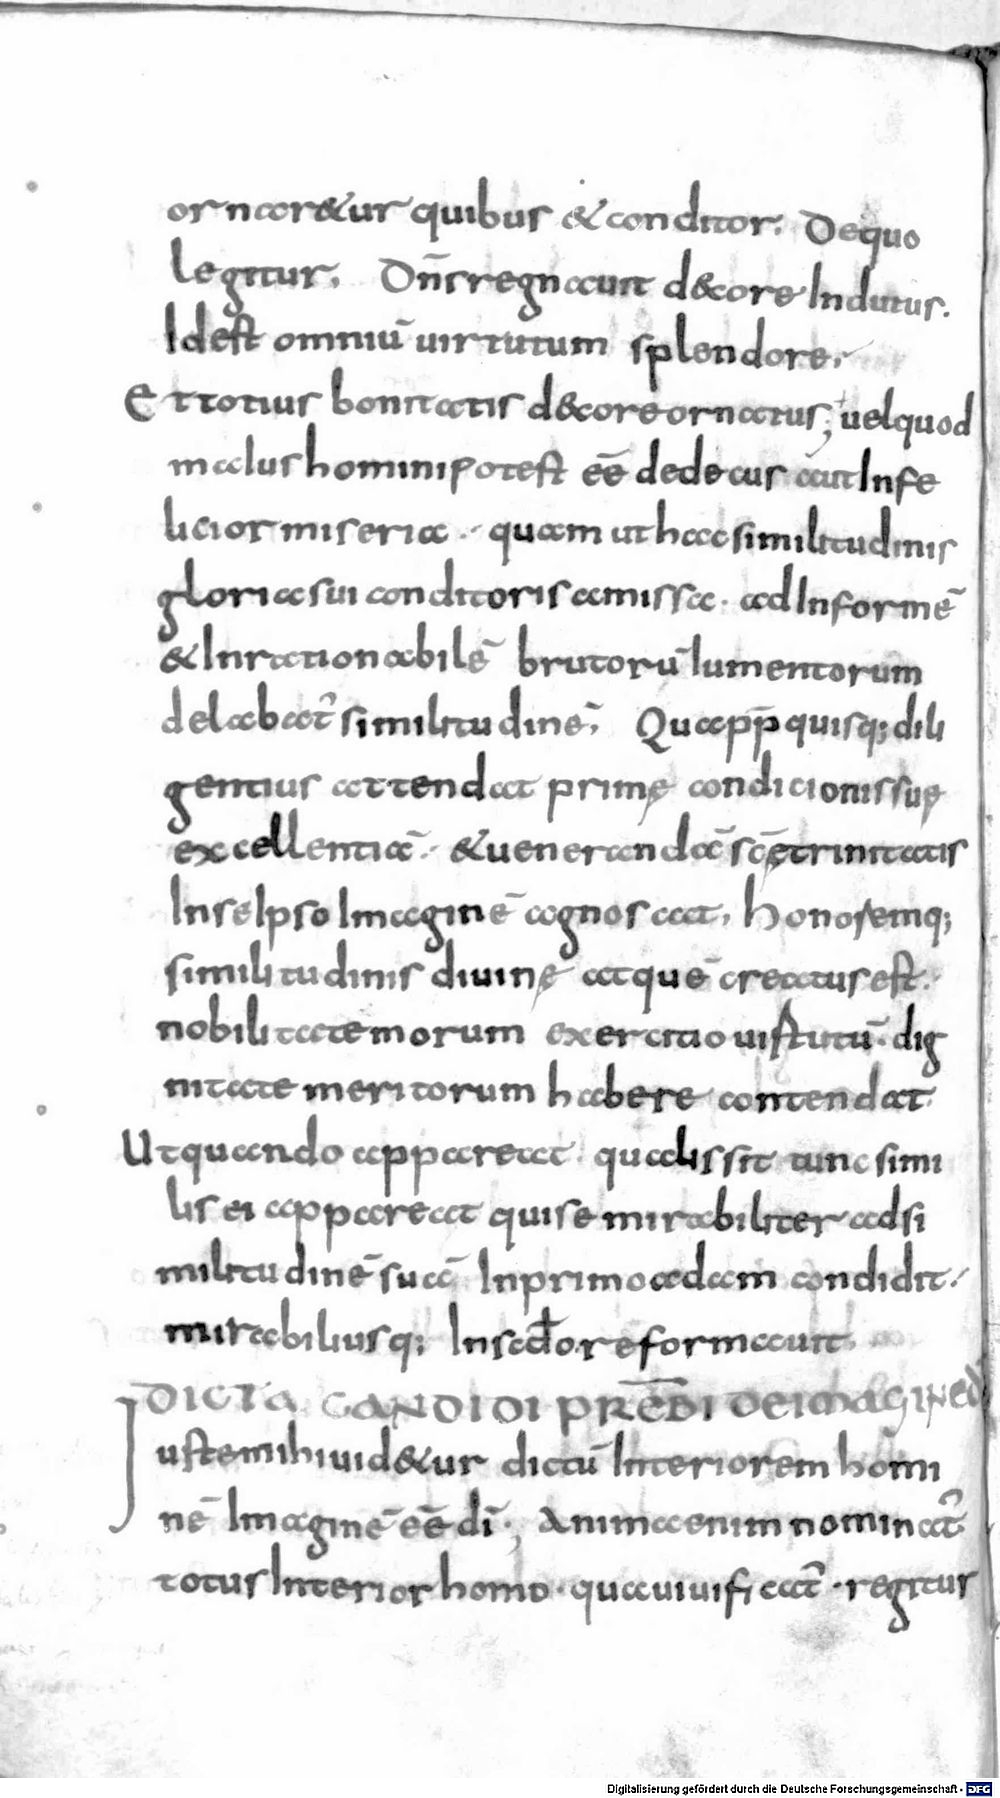 ornaretur quibus & conditor. De quo
legitur. Dn̄s regnauit decore Indutus.
Id est omniū uirtutum splendore.
Et totius bonitatis decore ornatus; uel quod
maius homini potest eē dedecus aut Infe
licior miseria. quam ut haec similitudinis
gloria sui conditoris amissa. ad Informē
& Inrationabilē brutorū Iumentorum
delabat̄ similitudinē. Quapp̄ quisq; dili
gentius attendat primę condicionis suę
excellentiā. & uenerandā sc̄ę trinitatis
In se Ipso Imaginē agnoscat. honoremq;
similitudinis diuinę ad quē creatus est.
nobilitate morum exercitio uirtutū. dig
nitate meritorum habere contendat
Ut quando appareat. qualis sit tunc simi
lis ei appareat qui se mirabiliter ad si
militudinē suā In primo adam condidit.
mirabiliusq; In scd̄o reformauit.
DICTA CANDIDI PRĒBI DE IMAGINE DĪ
Iuste mihi uid&ur dictū Interiorem homi
nē Imaginē eē dī; Anima enim nominat̄
totus Interior homo. qua uiuificat̄. regitur
Digitalisierung gefördert durch die Deutsche Forschungsgemeinschaft - DFG